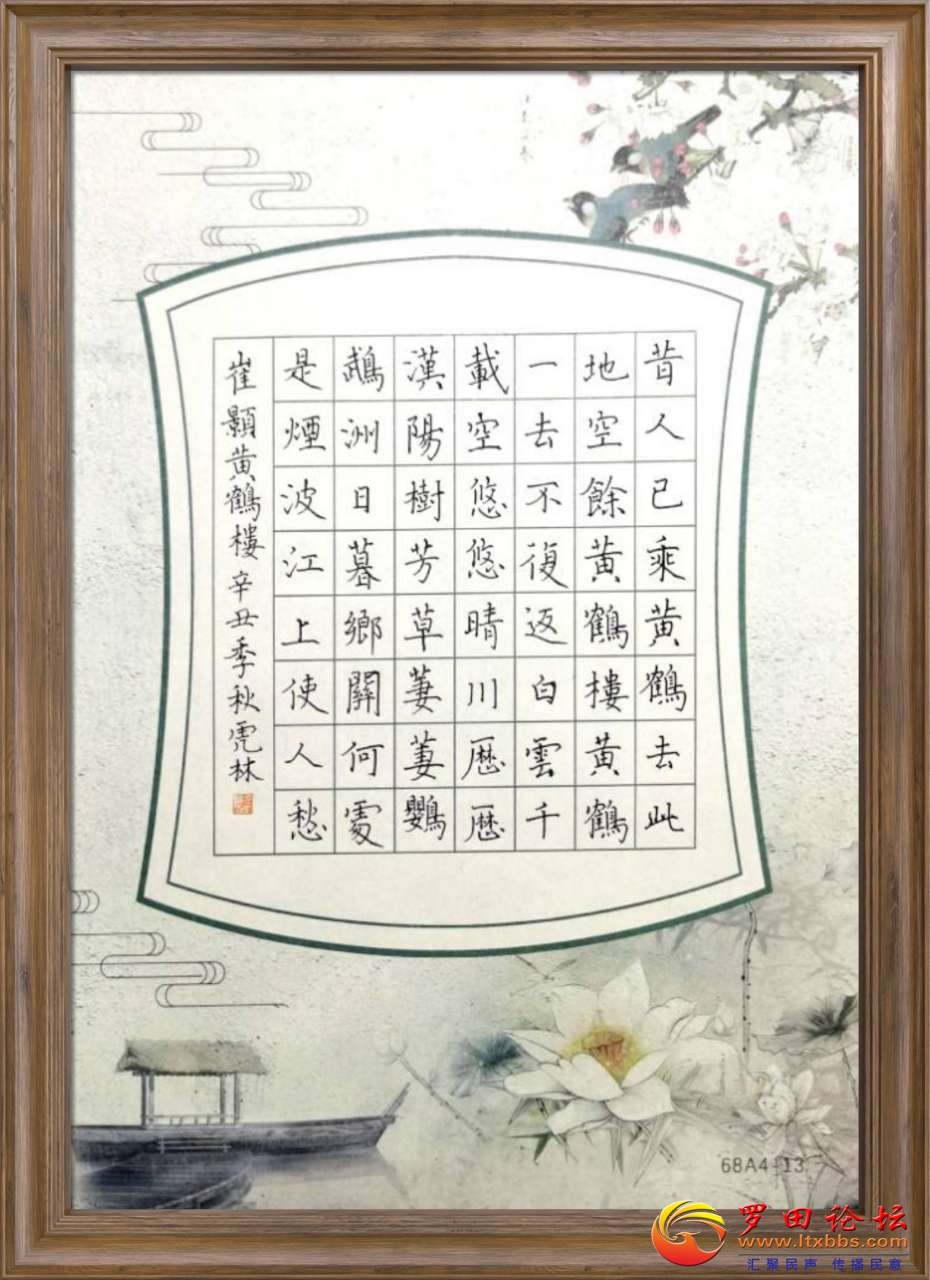 昔人已乘黄鶴去此
地空餘黄鶴樓黄鶴
一去不復返白雲千
載空悠悠晴川歷歷
漢陽樹芳草萋萋鸚
鵡洲日暮鄉關何處
是煙波江上使人愁
崔顥黄鶴樓 辛丑季秋虎林
68A4-13
罗田论坛
www.ltxbbs.com
汇聚民声 传播民意